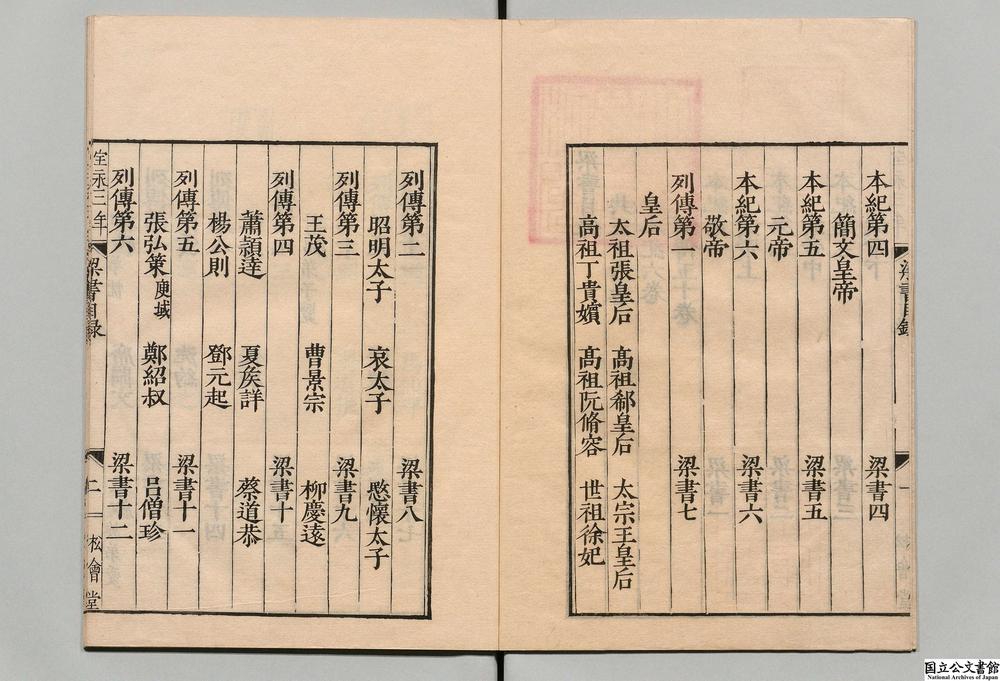 本紀第四 梁書四
簡文皇帝
本紀第五 梁書五
元帝
本紀第六 梁書六
敬帝
列傳第一 梁書七
皇后
太祖張皇后 高祖郗皇后 太宗王皇后
高祖丁貴嬪 高祖阮脩容 世祖徐妃
梁書目錄
列傳第二 梁書八
昭明太子 哀太子 愍懷太子
列傳第三 梁書九
王茂 曹景宗 柳慶遠
列傳第四 梁書十
蕭頴達 夏矦詳 蔡道恭
楊公則 鄧元起
列傳第五 梁書十一
張弘策 庾域 鄭紹叔 呂僧珍
列傳第六 梁書十二
寳永三年 梁書目錄 二 松會堂
国立公文書館
National Archives of Japan